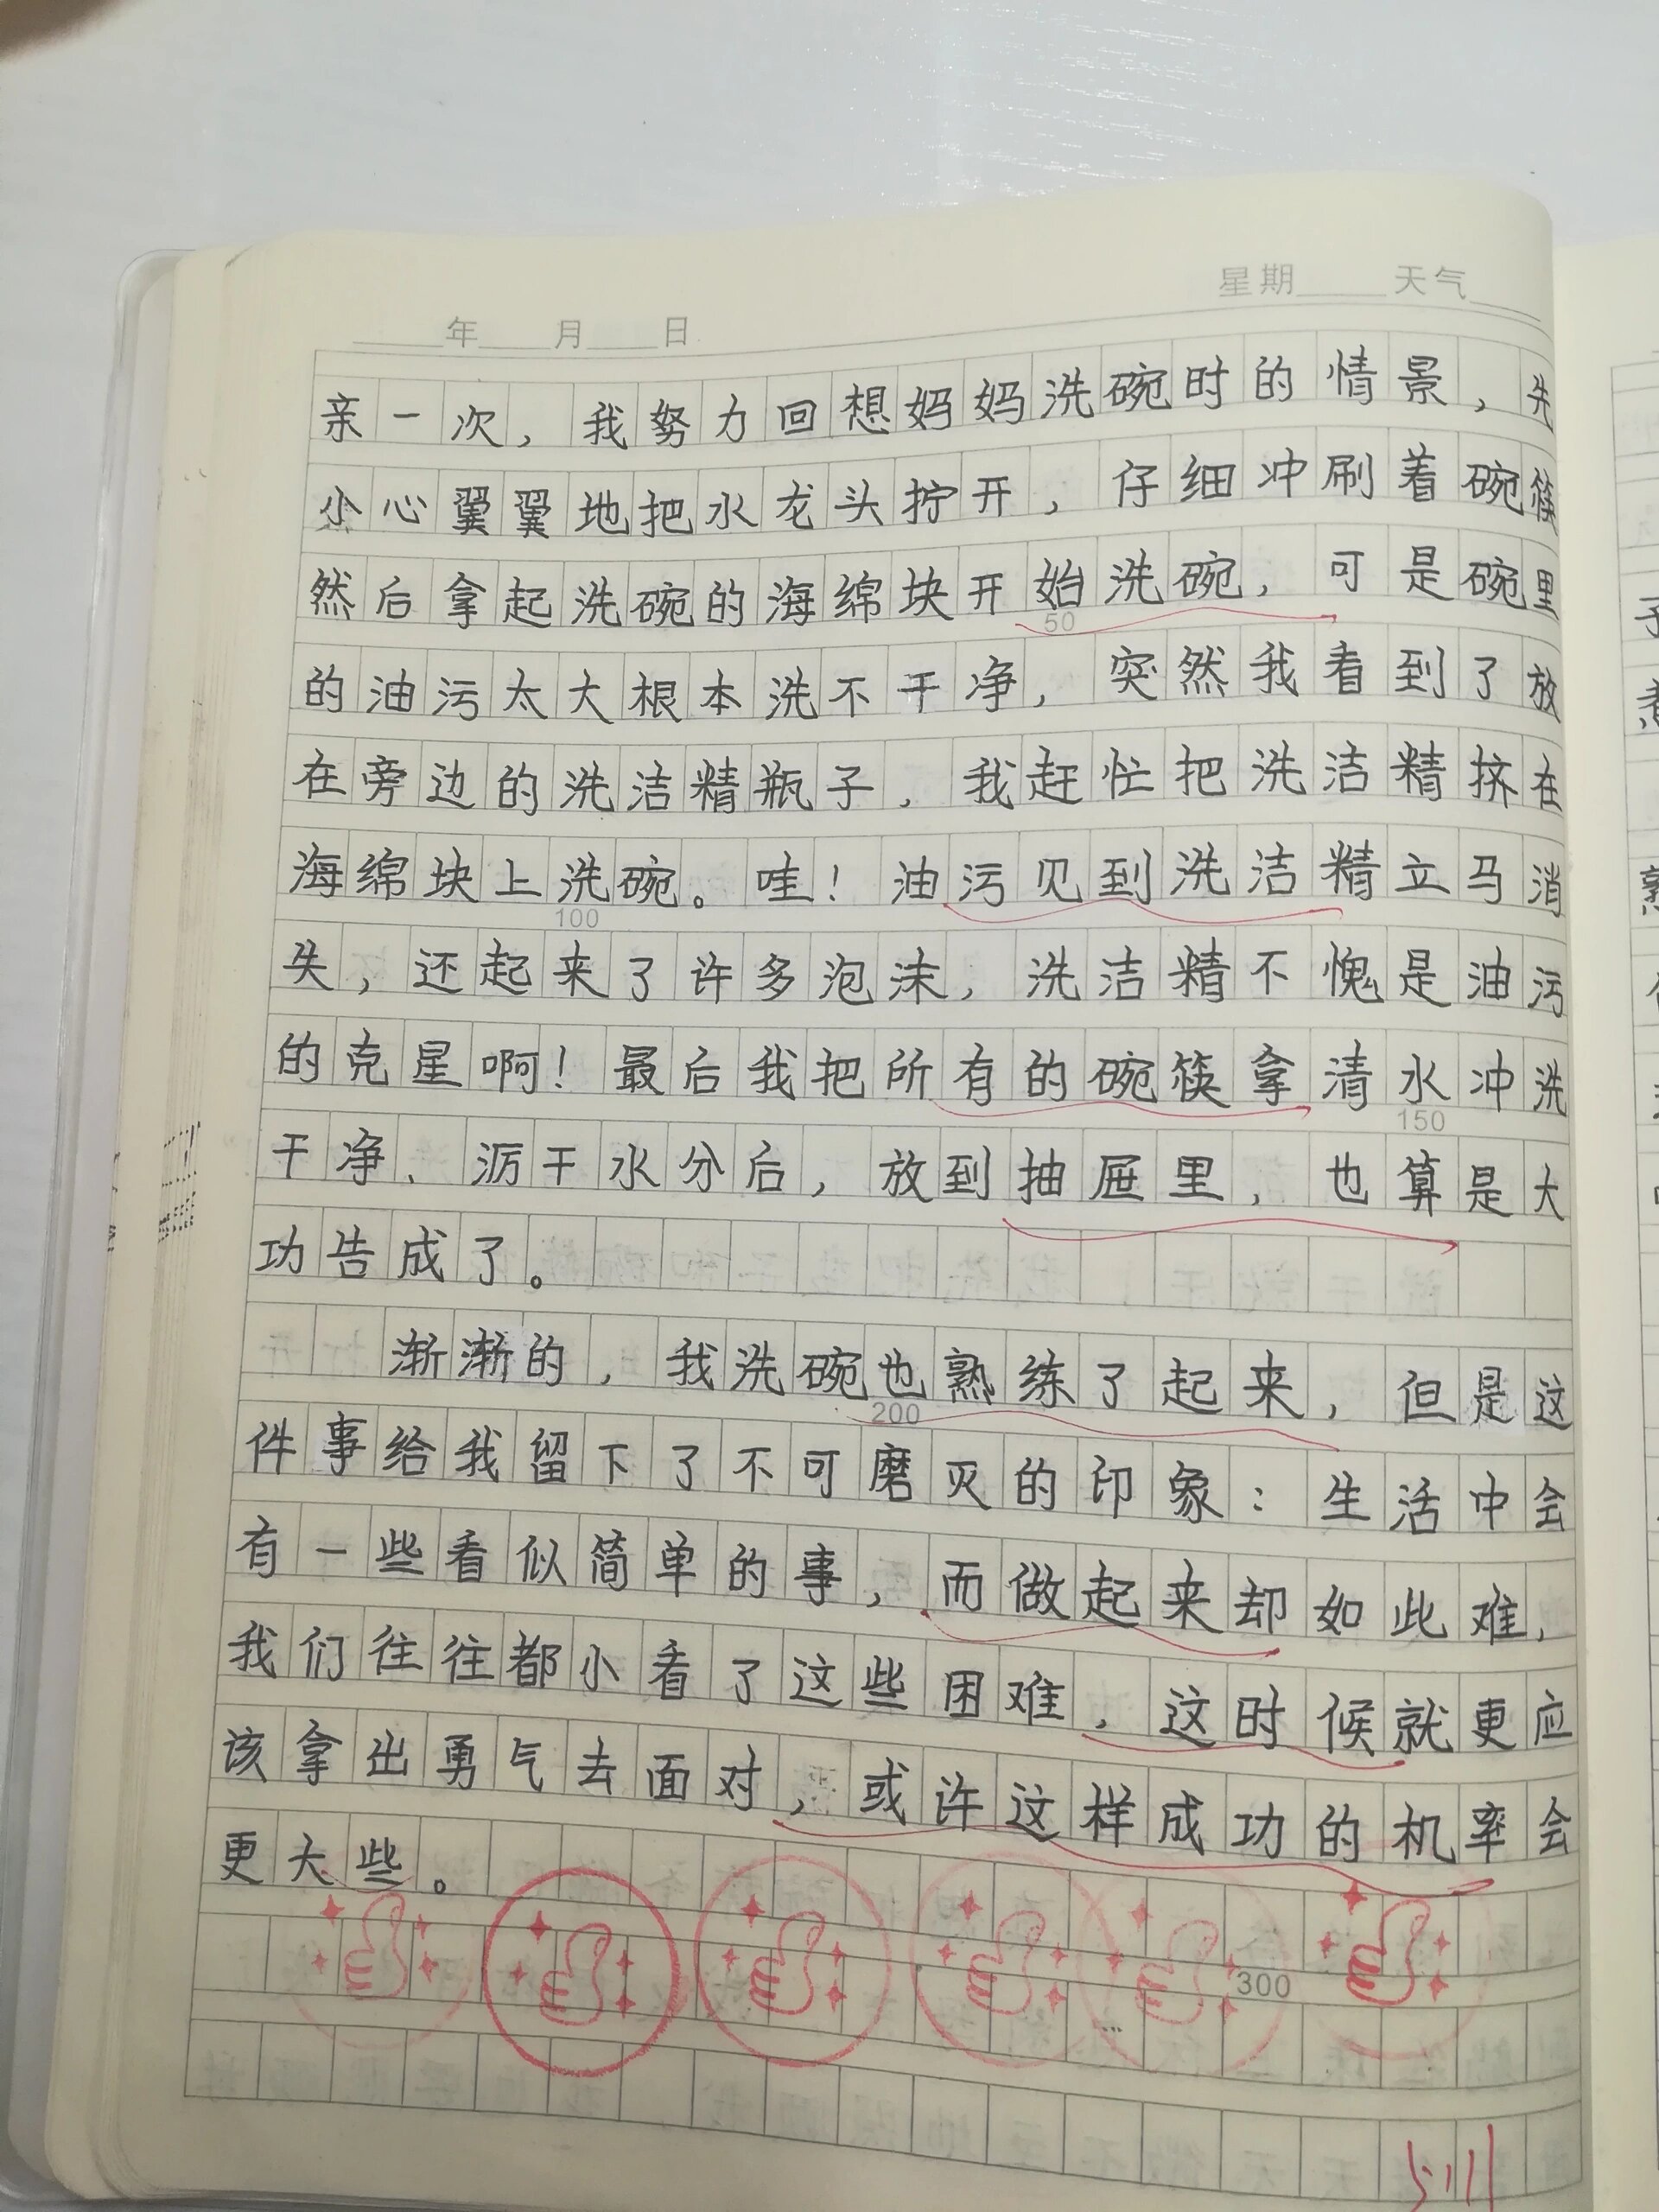 星期 天气
年 月 日
亲一次，我努力回想妈妈洗碗时的情景，先
小心翼翼地把水龙头拧开，仔细冲刷着碗筷
然后拿起洗碗的海绵块开始洗碗，可是碗里
50
的油污太大根本洗不干净，突然我看到了放
在旁边的洗洁精瓶子，我赶忙把洗洁精挤在
海绵块上洗碗。哇！油污见到洗洁精立马消
100
失，还起来了许多泡沫，洗洁精不愧是油污
的克星啊！最后我把所有的碗筷拿清水冲洗
150
干净、沥干水分后，放到抽屉里，也算是大
功告成了。
渐渐的，我洗碗也熟练了起来，但是这
200
件事给我留下了不可磨灭的印象：生活中会
有一些看似简单的事，而做起来却如此难，
我们往往都小看了这些困难，这时候就更应
该拿出勇气去面对，或许这样成功的机率会
更大些。
300